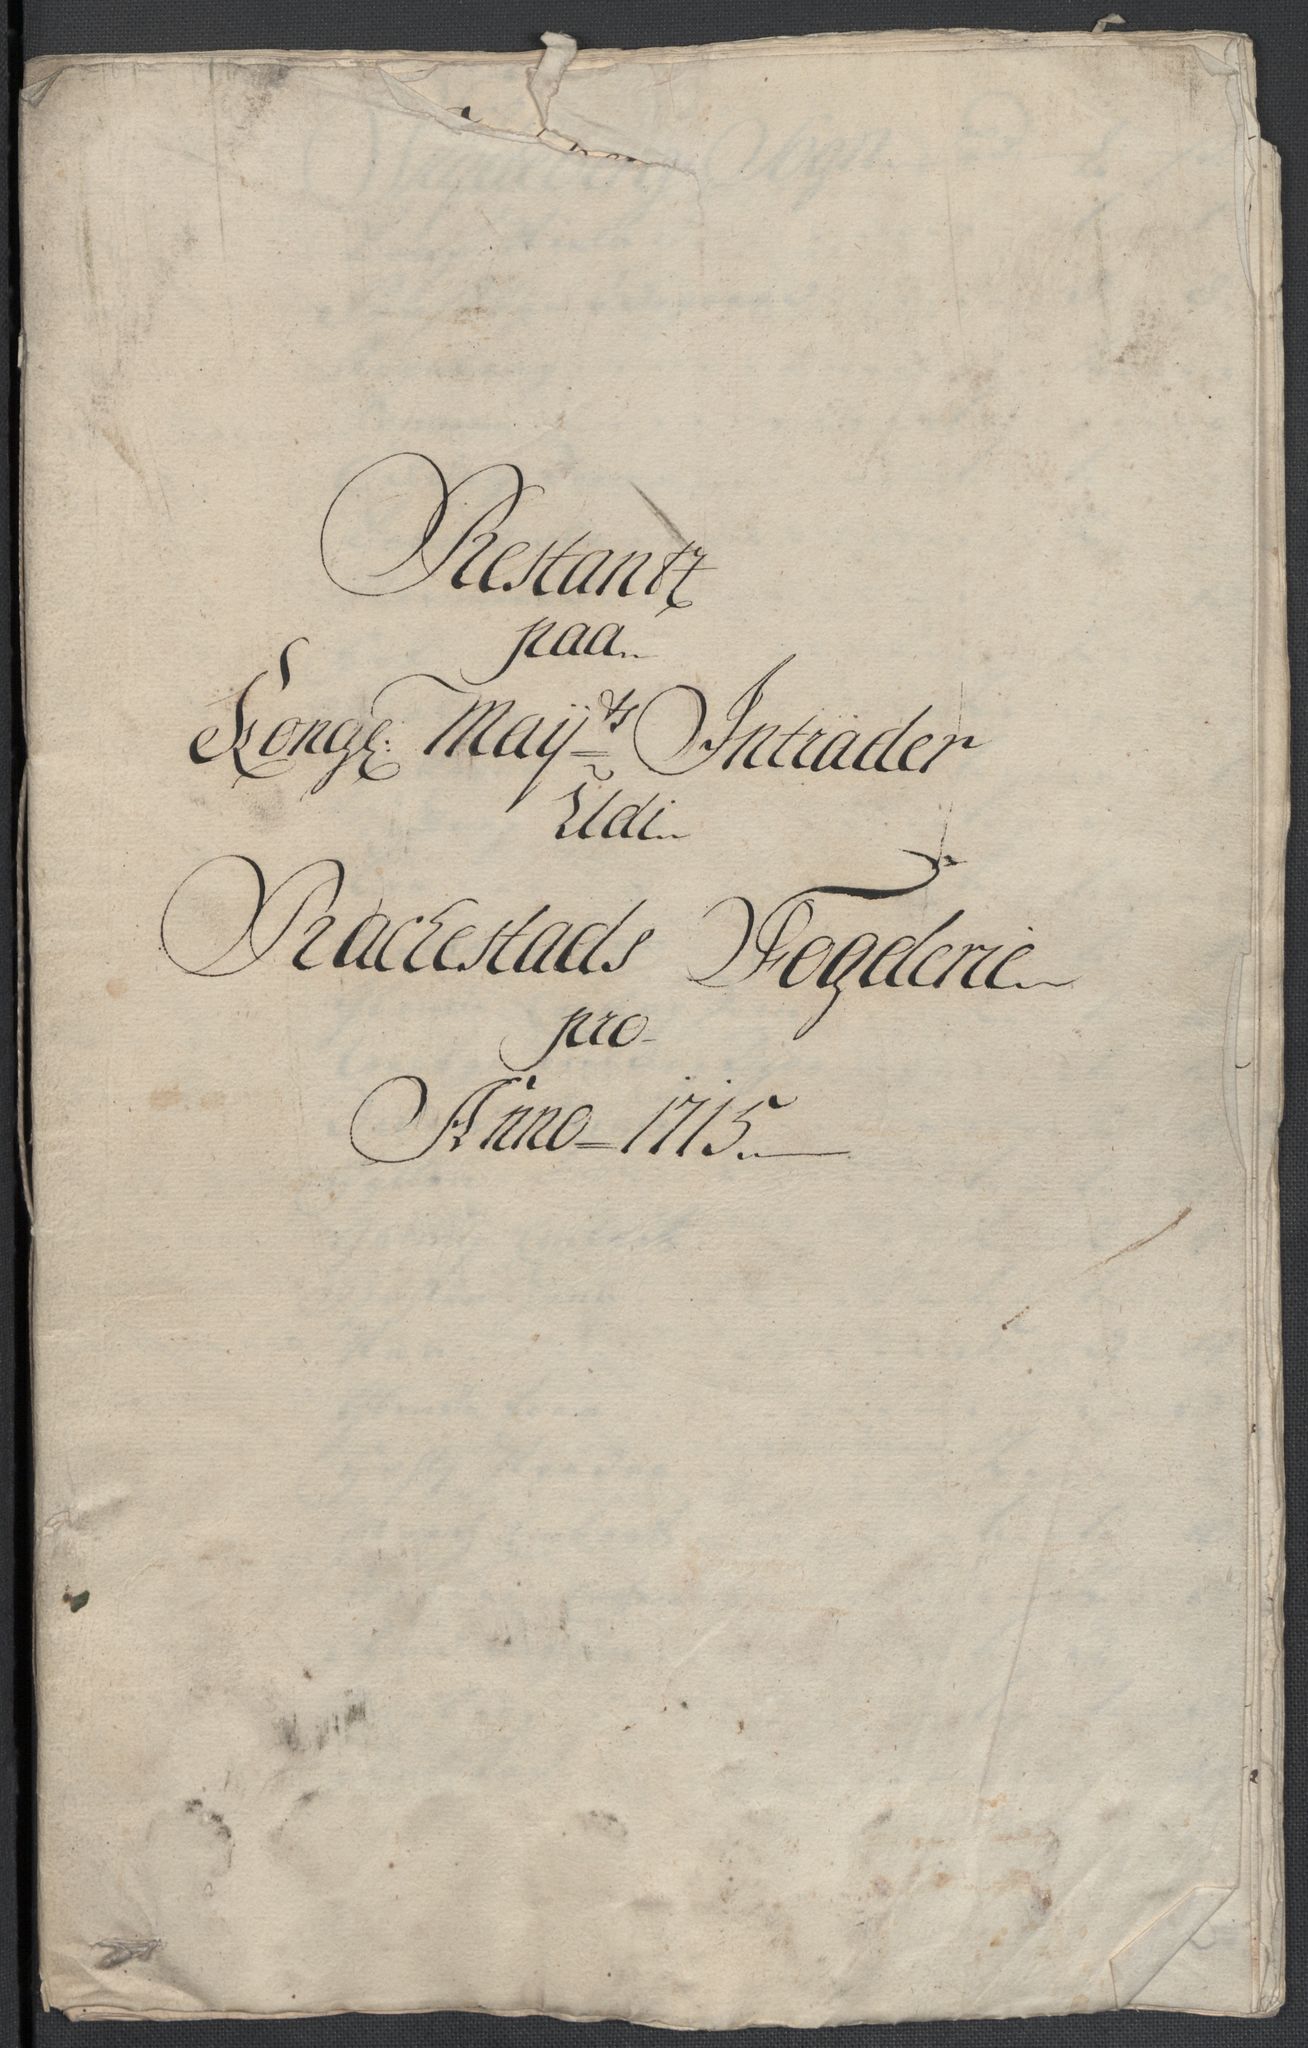 Restantz
paa
Kongl: Maÿts Intrader
Udi
Rackestads Fogderie
pro
Anno 1715